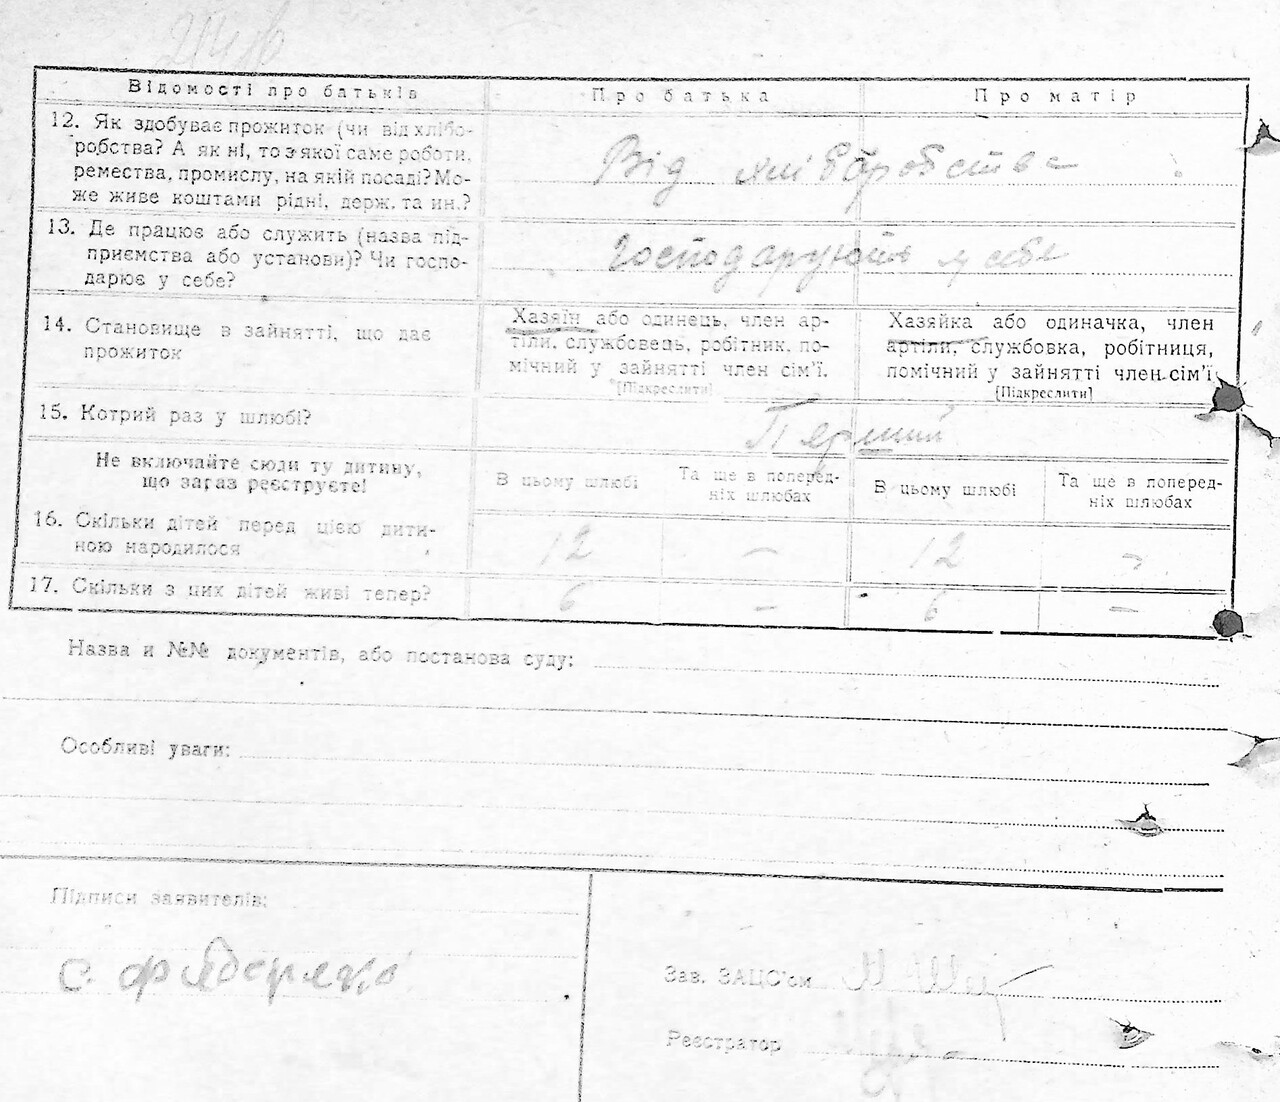 Відомості про батьків
Про батька
Про матір
12. Як здобуває прожиток (чи від хлібо-
робства? А як ні, то з якої саме роботи,
ремества, промислу, на якій посаді? Мо-
же живе коштами рідні, держ. та ин.?
Від хліборобства
13. Де працює або служить (назва під-
приємства або установи)? Чи госпо-
дарює у себе?
Господарують у себе
14. Становище в зайнятті, що дає
прожиток
Хазяїн або одинець, член ар-
тіли, службовець, робітник, по-
мічний у зайнятті член сім'ї.
[Підкреслити]
Хазяйка або одиначка, член
артіли, службовка, робітниця,
помічний у зайнятті член сім'ї
[Підкреслити]
15. Котрий раз у шлюбі?
Перший
Не включайте сюди ту дитину,
що зараз реєструєте!
В цьому шлюбі
Та ще в поперед-
ніх шлюбах
В цьому шлюбі
Та ще в поперед-
ніх шлюбах
16. Скільки дітей перед цією дити-
ною народилося
12 – 12 –
17. Скільки з цих дітей живі тепер?
6 – 6 –
Назва и №№ документів, або постанова суду:
Особливі уваги:
Підписи заявителів:
Зав. ЗАЦС'ом
Реєстратор